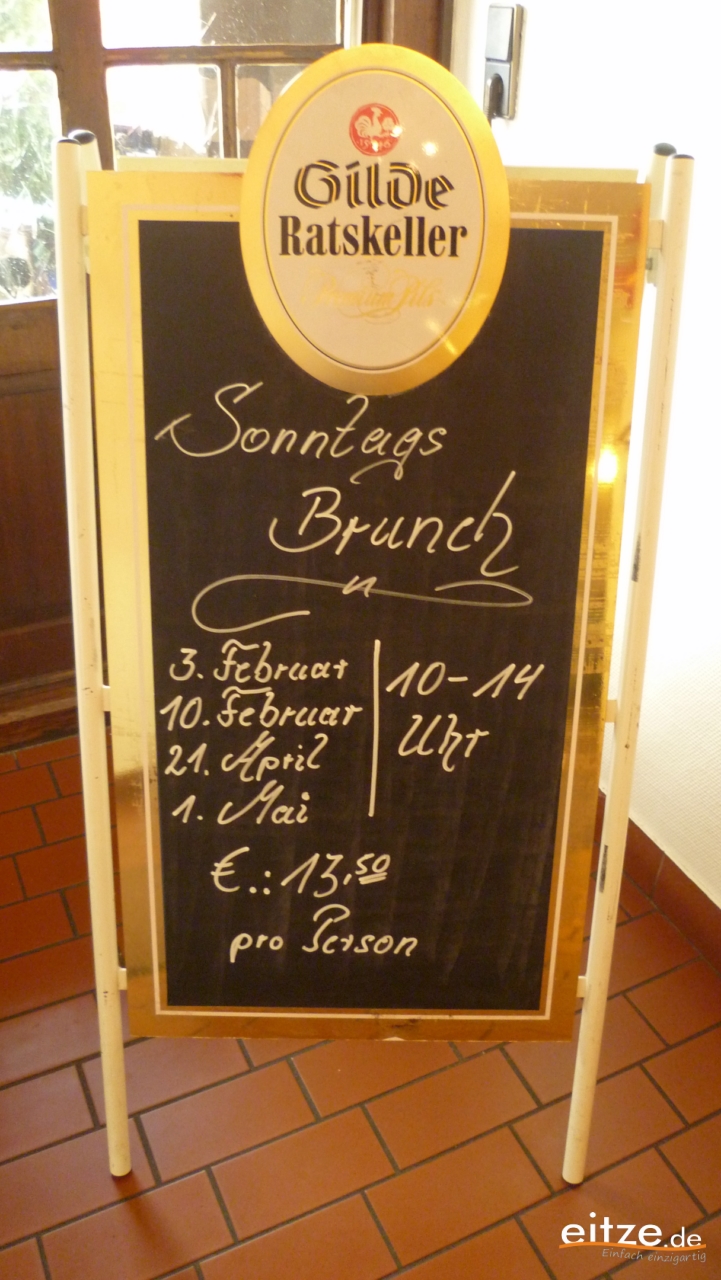 1546
Gilde
Ratskeller
Premium Pils
Sonntags
Brunch
3. Februar
10. Februar
21. April
1. Mai
10-14
Uhr
€.: 13,50
pro Person
eitze.de
Einfach einzigartig